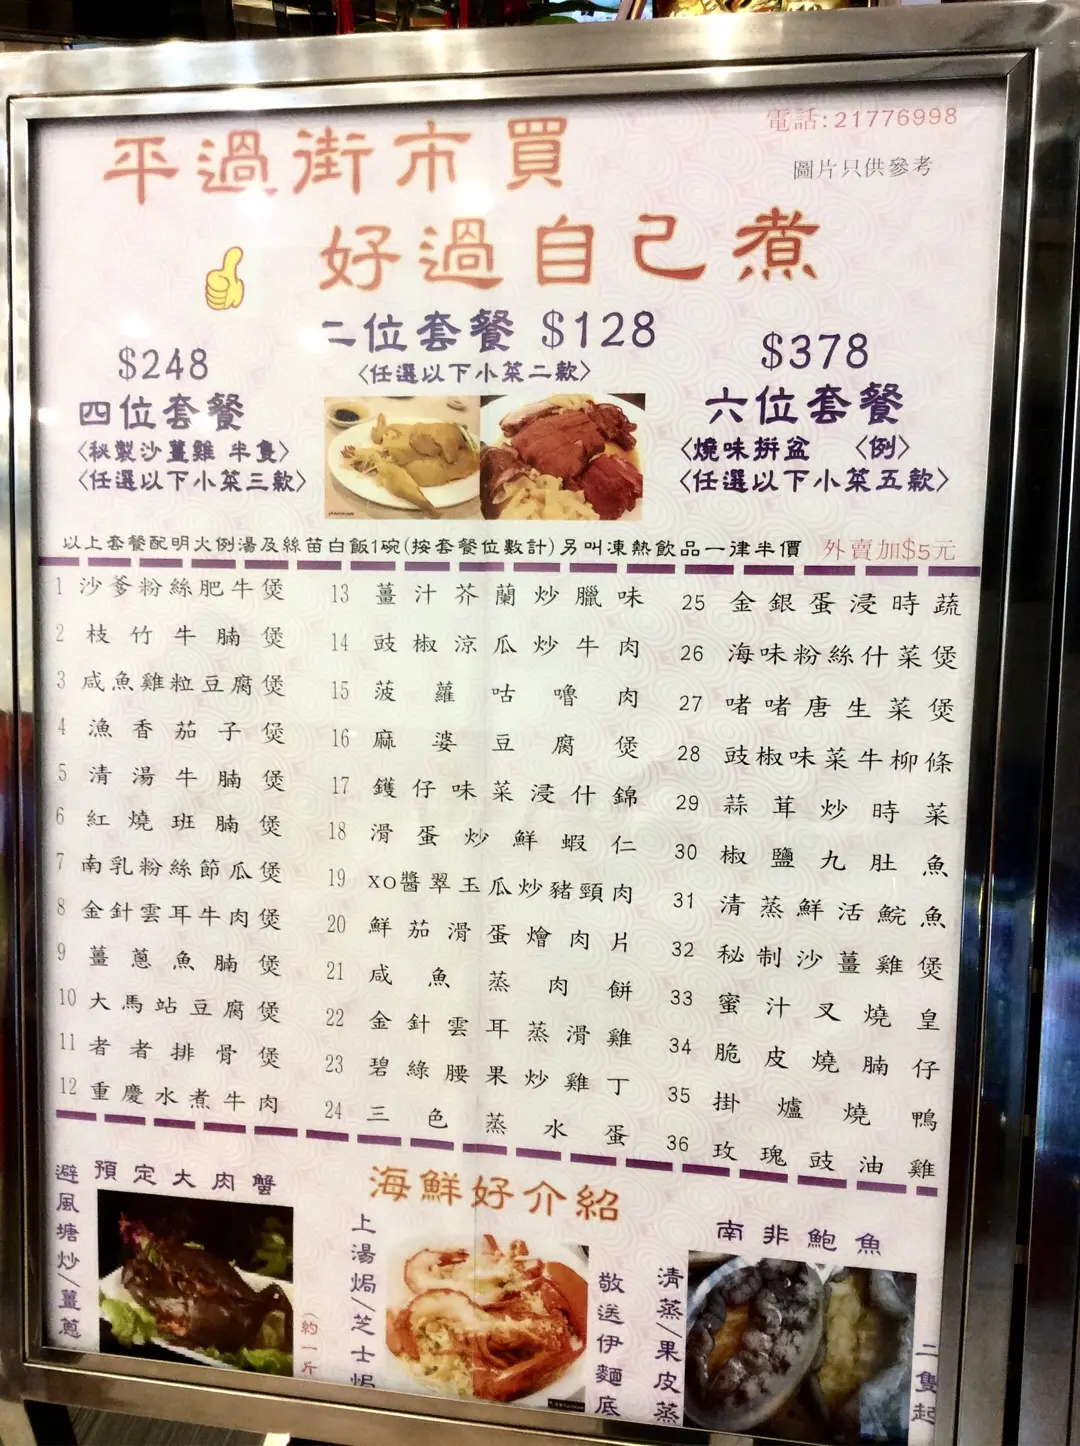 電話:21776998
圖片只供參考
平過街市買
好過自己煮
二位套餐 $128
〈任選以下小菜二款〉
$248
四位套餐
〈秘製沙薑雞 半隻〉
〈任選以下小菜三款〉
$378
六位套餐
〈燒味拼盆 〈例〉
〈任選以下小菜五款〉
以上套餐配明火例湯及絲苗白飯1碗(按套餐位數計)另叫凍熱飲品一律半價 外賣加$5元
1 沙爹粉絲肥牛煲
2 枝竹牛腩煲
3 咸魚雞粒豆腐煲
4 漁香茄子煲
5 清湯牛腩煲
6 紅燒班腩煲
7 南乳粉絲節瓜煲
8 金針雲耳牛肉煲
9 薑蔥魚腩煲
10 大馬站豆腐煲
11 者者排骨煲
12 重慶水煮牛肉
13 薑汁芥蘭炒臘味
14 豉椒涼瓜炒牛肉
15 菠蘿咕嚕肉
16 麻婆豆腐煲
17 鑊仔味菜浸什錦
18 滑蛋炒鮮蝦仁
19 XO醬翠玉瓜炒豬頸肉
20 鮮茄滑蛋燴肉片
21 咸魚蒸肉餅
22 金針雲耳蒸滑雞
23 碧綠腰果炒雞丁
24 三色蒸水蛋
25 金銀蛋浸時蔬
26 海味粉絲什菜煲
27 啫啫唐生菜煲
28 豉椒味菜牛柳條
29 蒜茸炒時菜
30 椒鹽九肚魚
31 清蒸鮮活鯇魚
32 秘制沙薑雞煲
33 蜜汁叉燒皇
34 脆皮燒腩仔
35 掛爐燒鴨
36 玫瑰豉油雞
海鮮好介紹
預定大肉蟹
避風塘炒/薑蔥
(約一斤
上湯焗/芝士焗
敬送伊麵底
南非鮑魚
清蒸/果皮蒸
二隻起